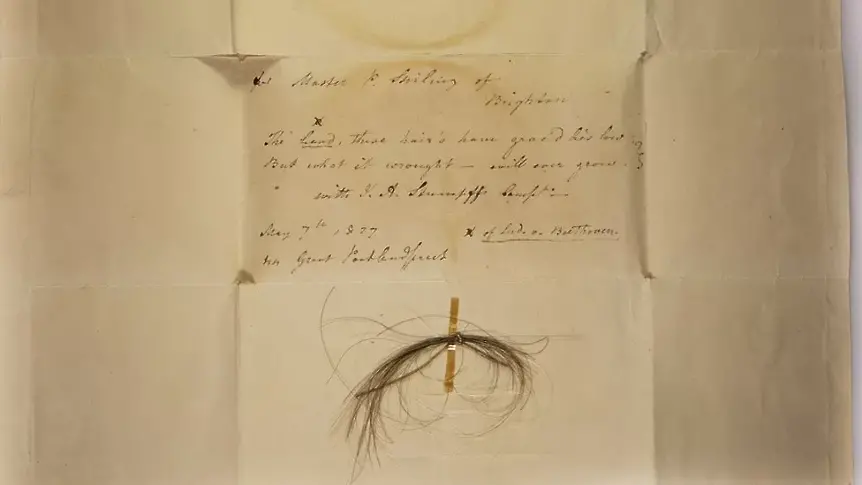 for Master P. Stirling of
Brighton
x
The head, these hair's have grac'd lies low
But what it wrought — will ever grow.
with J. A. Stumpff's Compts
May 7th 1827
44 Great Portland Street
x of Lud. v. Beethoven.